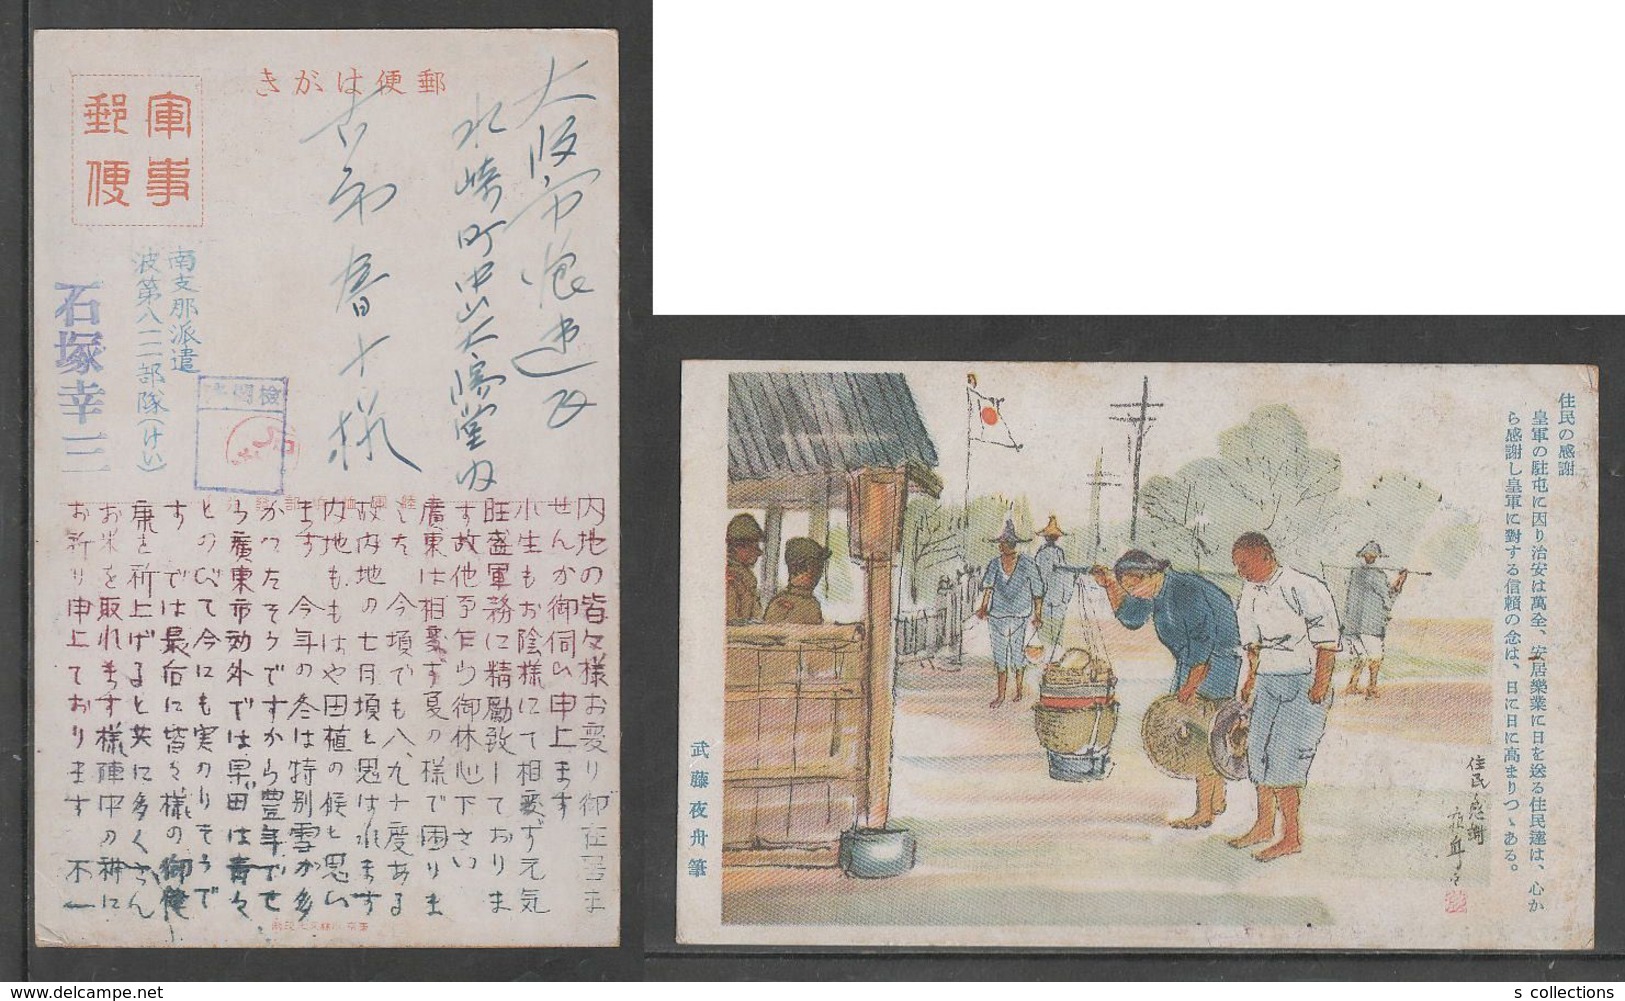 郵便はがき
軍事
郵便
大阪市浪速区
水崎町中山太陽堂内
古市春十様
南支那派遣
波第八一二二部隊（けい）
石塚幸三
検閲済
内地の皆々様お変り御在ゐま
せんか御伺ひ申上ます
小生もお陰様にて相変ず元気
旺盛軍務に精励致しておりま
す故他事乍ら御休心下さい
廣東は相変ず夏の様で困りま
した 今頃でも八九十度ある
故内地の七月頃と思はれます
内地ももはや田植の候と思い
ます 今年の冬は特別雪が多
かったそうですから豊年でせ
う廣東市効外では早田は青々
とのびて今にも実のりそうで
す では最后に皆々様の御健
康を祈上げると共に多くさん
お米を取れます様陣中の耕に
お祈り申上ております 不一
住民の感謝
皇軍の駐屯に因り治安は萬全、安居樂業に日を送る住民達は、心か
ら感謝し皇軍に對する信賴の念は、日に日に高まりつゝある。
武藤夜舟筆
住民感謝
夜舟
s collections